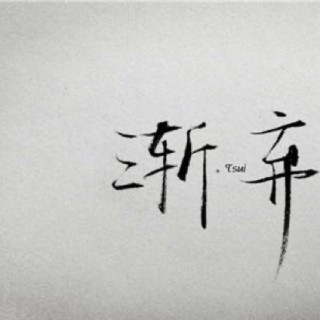 渐 . Tsui 弃